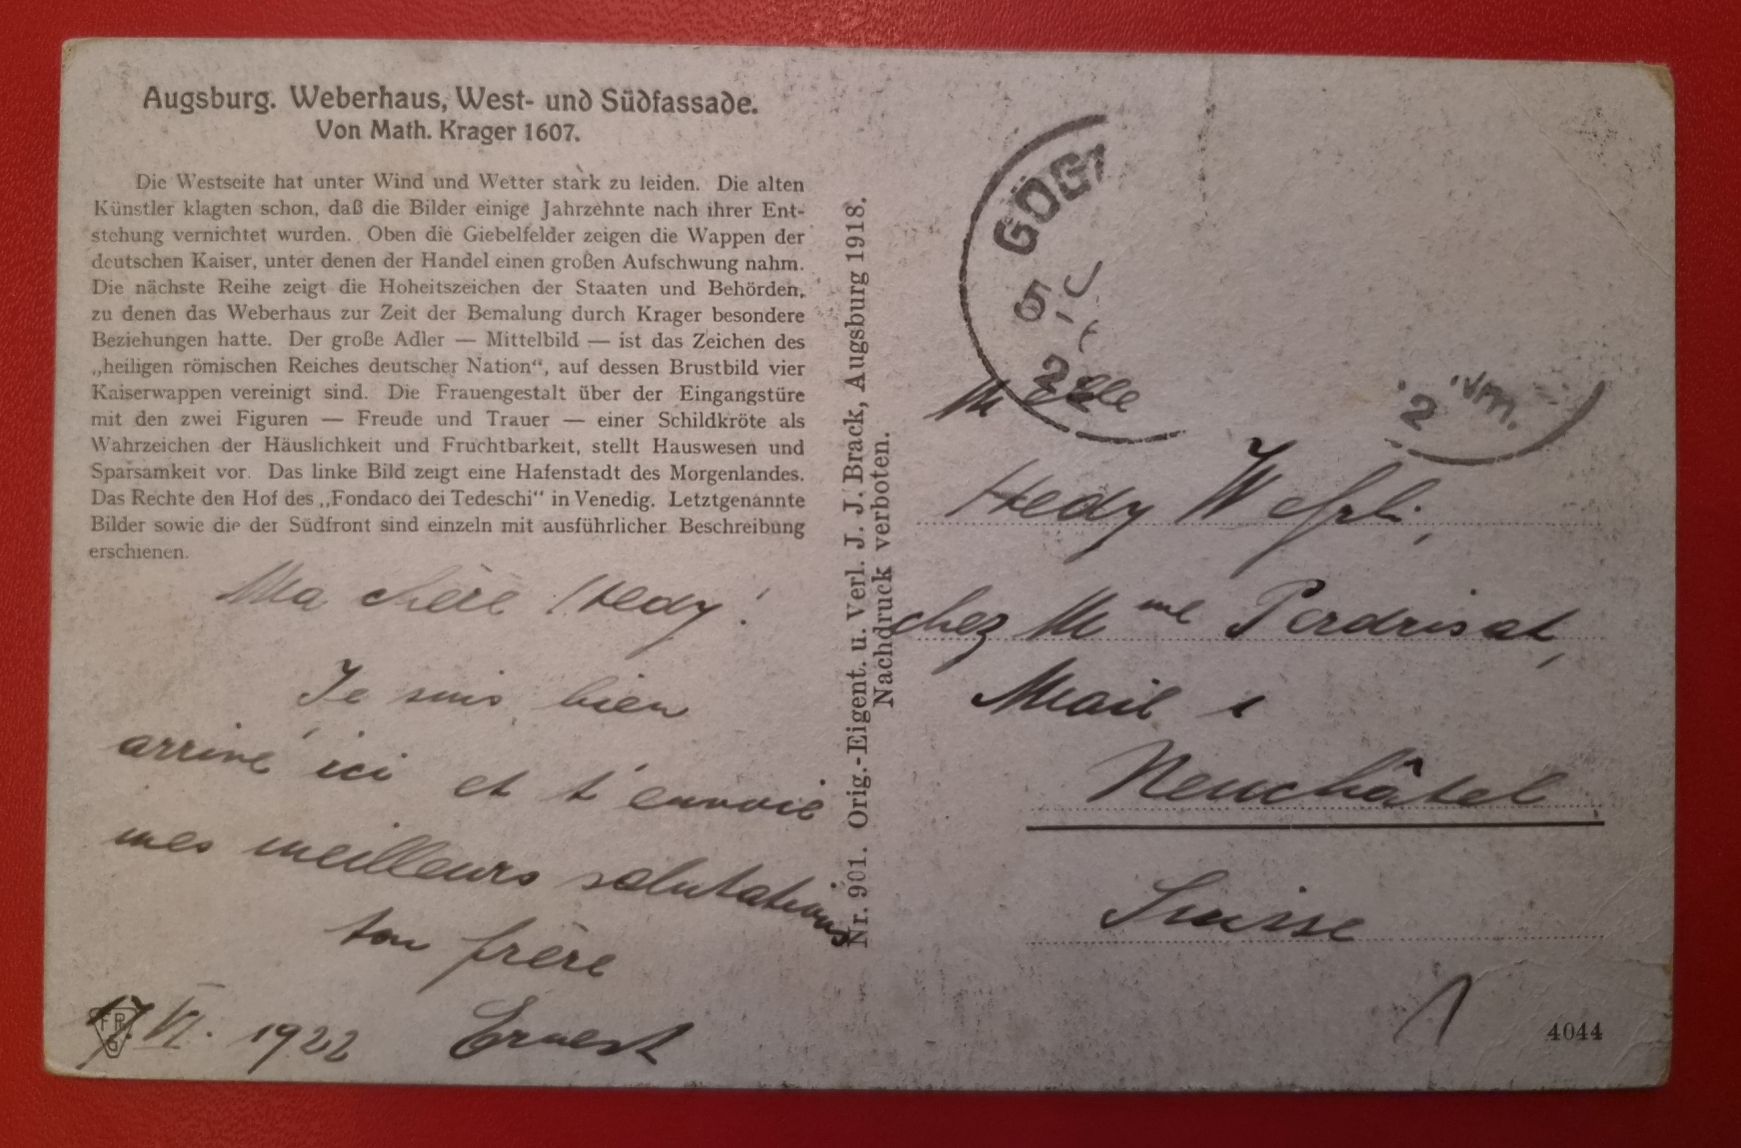 Augsburg. Weberhaus, West- und Südfassade.
Von Math. Krager 1607.
Die Westseite hat unter Wind und Wetter stark zu leiden. Die alten
Künstler klagten schon, daß die Bilder einige Jahrzehnte nach ihrer Ent-
stehung vernichtet wurden. Oben die Giebelfelder zeigen die Wappen der
deutschen Kaiser, unter denen der Handel einen großen Aufschwung nahm.
Die nächste Reihe zeigt die Hoheitszeichen der Staaten und Behörden,
zu denen das Weberhaus zur Zeit der Bemalung durch Krager besondere
Beziehungen hatte. Der große Adler — Mittelbild — ist das Zeichen des
„heiligen römischen Reiches deutscher Nation“, auf dessen Brustbild vier
Kaiserwappen vereinigt sind. Die Frauengestalt über der Eingangstüre
mit den zwei Figuren — Freude und Trauer — einer Schildkröte als
Wahrzeichen der Häuslichkeit und Fruchtbarkeit, stellt Hauswesen und
Sparsamkeit vor. Das linke Bild zeigt eine Hafenstadt des Morgenlandes.
Das Rechte den Hof des „Fondaco dei Tedeschi“ in Venedig. Letztgenannte
Bilder sowie die der Südfront sind einzeln mit ausführlicher Beschreibung
erschienen.
Ma chère Hedy!
Je suis bien
arrivé ici et t'envoie
mes meilleurs salutations
ton frère
17. VI. 1922 Ernest
FR
6
Nr. 901. Orig.-Eigent. u. Verl. J. J. Brack, Augsburg 1918.
Nachdruck verboten.
GÖG
5
2 Nm.
Melle
Hedy Wehrli,
chez Mme Perdrisat,
Mail 1
Neuchâtel
Suisse
4044